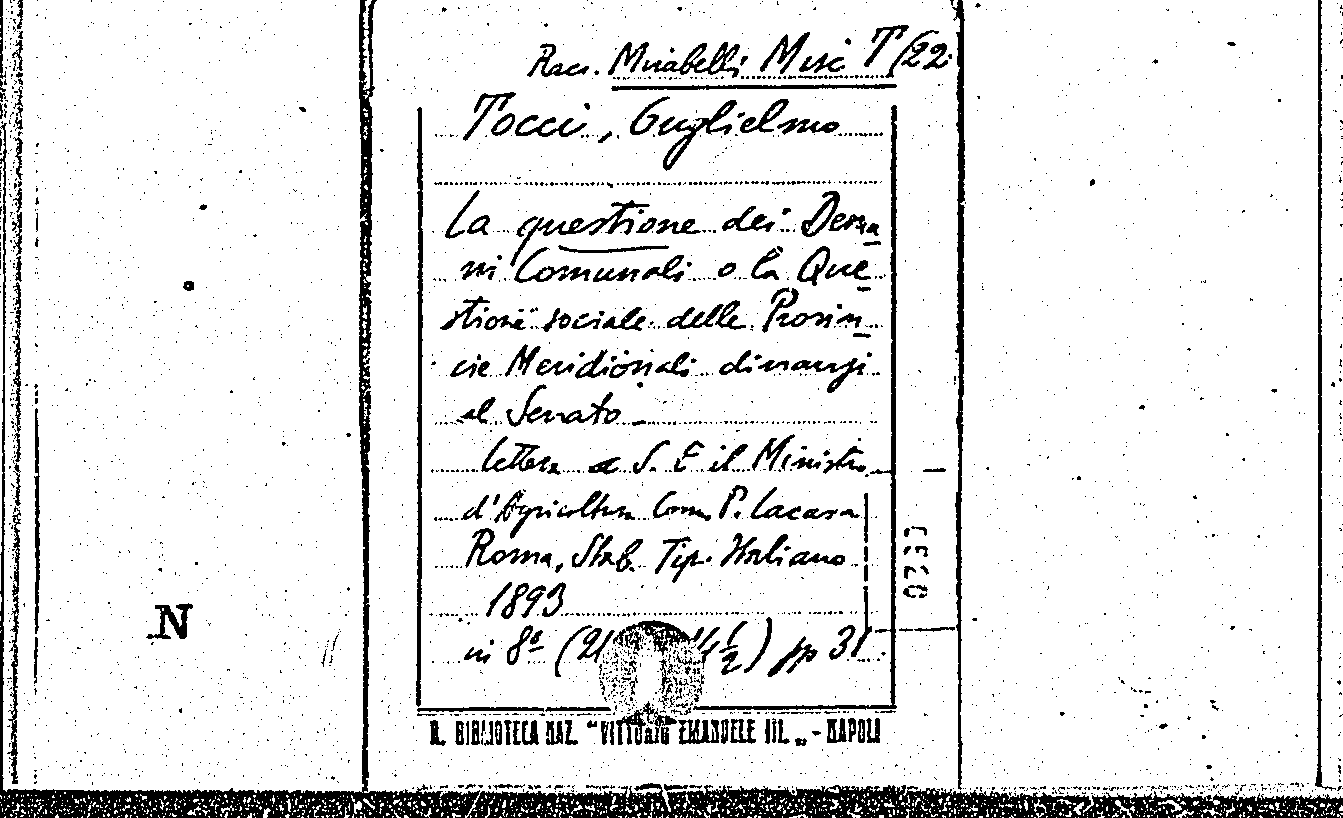 Racc. Mirabelli Misc T/22
Tocci, Guglielmo
La questione dei Dema
ni Comunali o la Que
stione sociale delle Provin
cie Meridionali dinanzi
al Senato
lettera a S. E il Ministro
d'Agricoltura Com. P. Lacava
Roma, Stab. Tip. Italiano
1893
in 8º (21 14 1/2) pp 31
R. BIBLIOTECA NAZ. "VITTORIO EMANUELE III. „ - NAPOLI
N